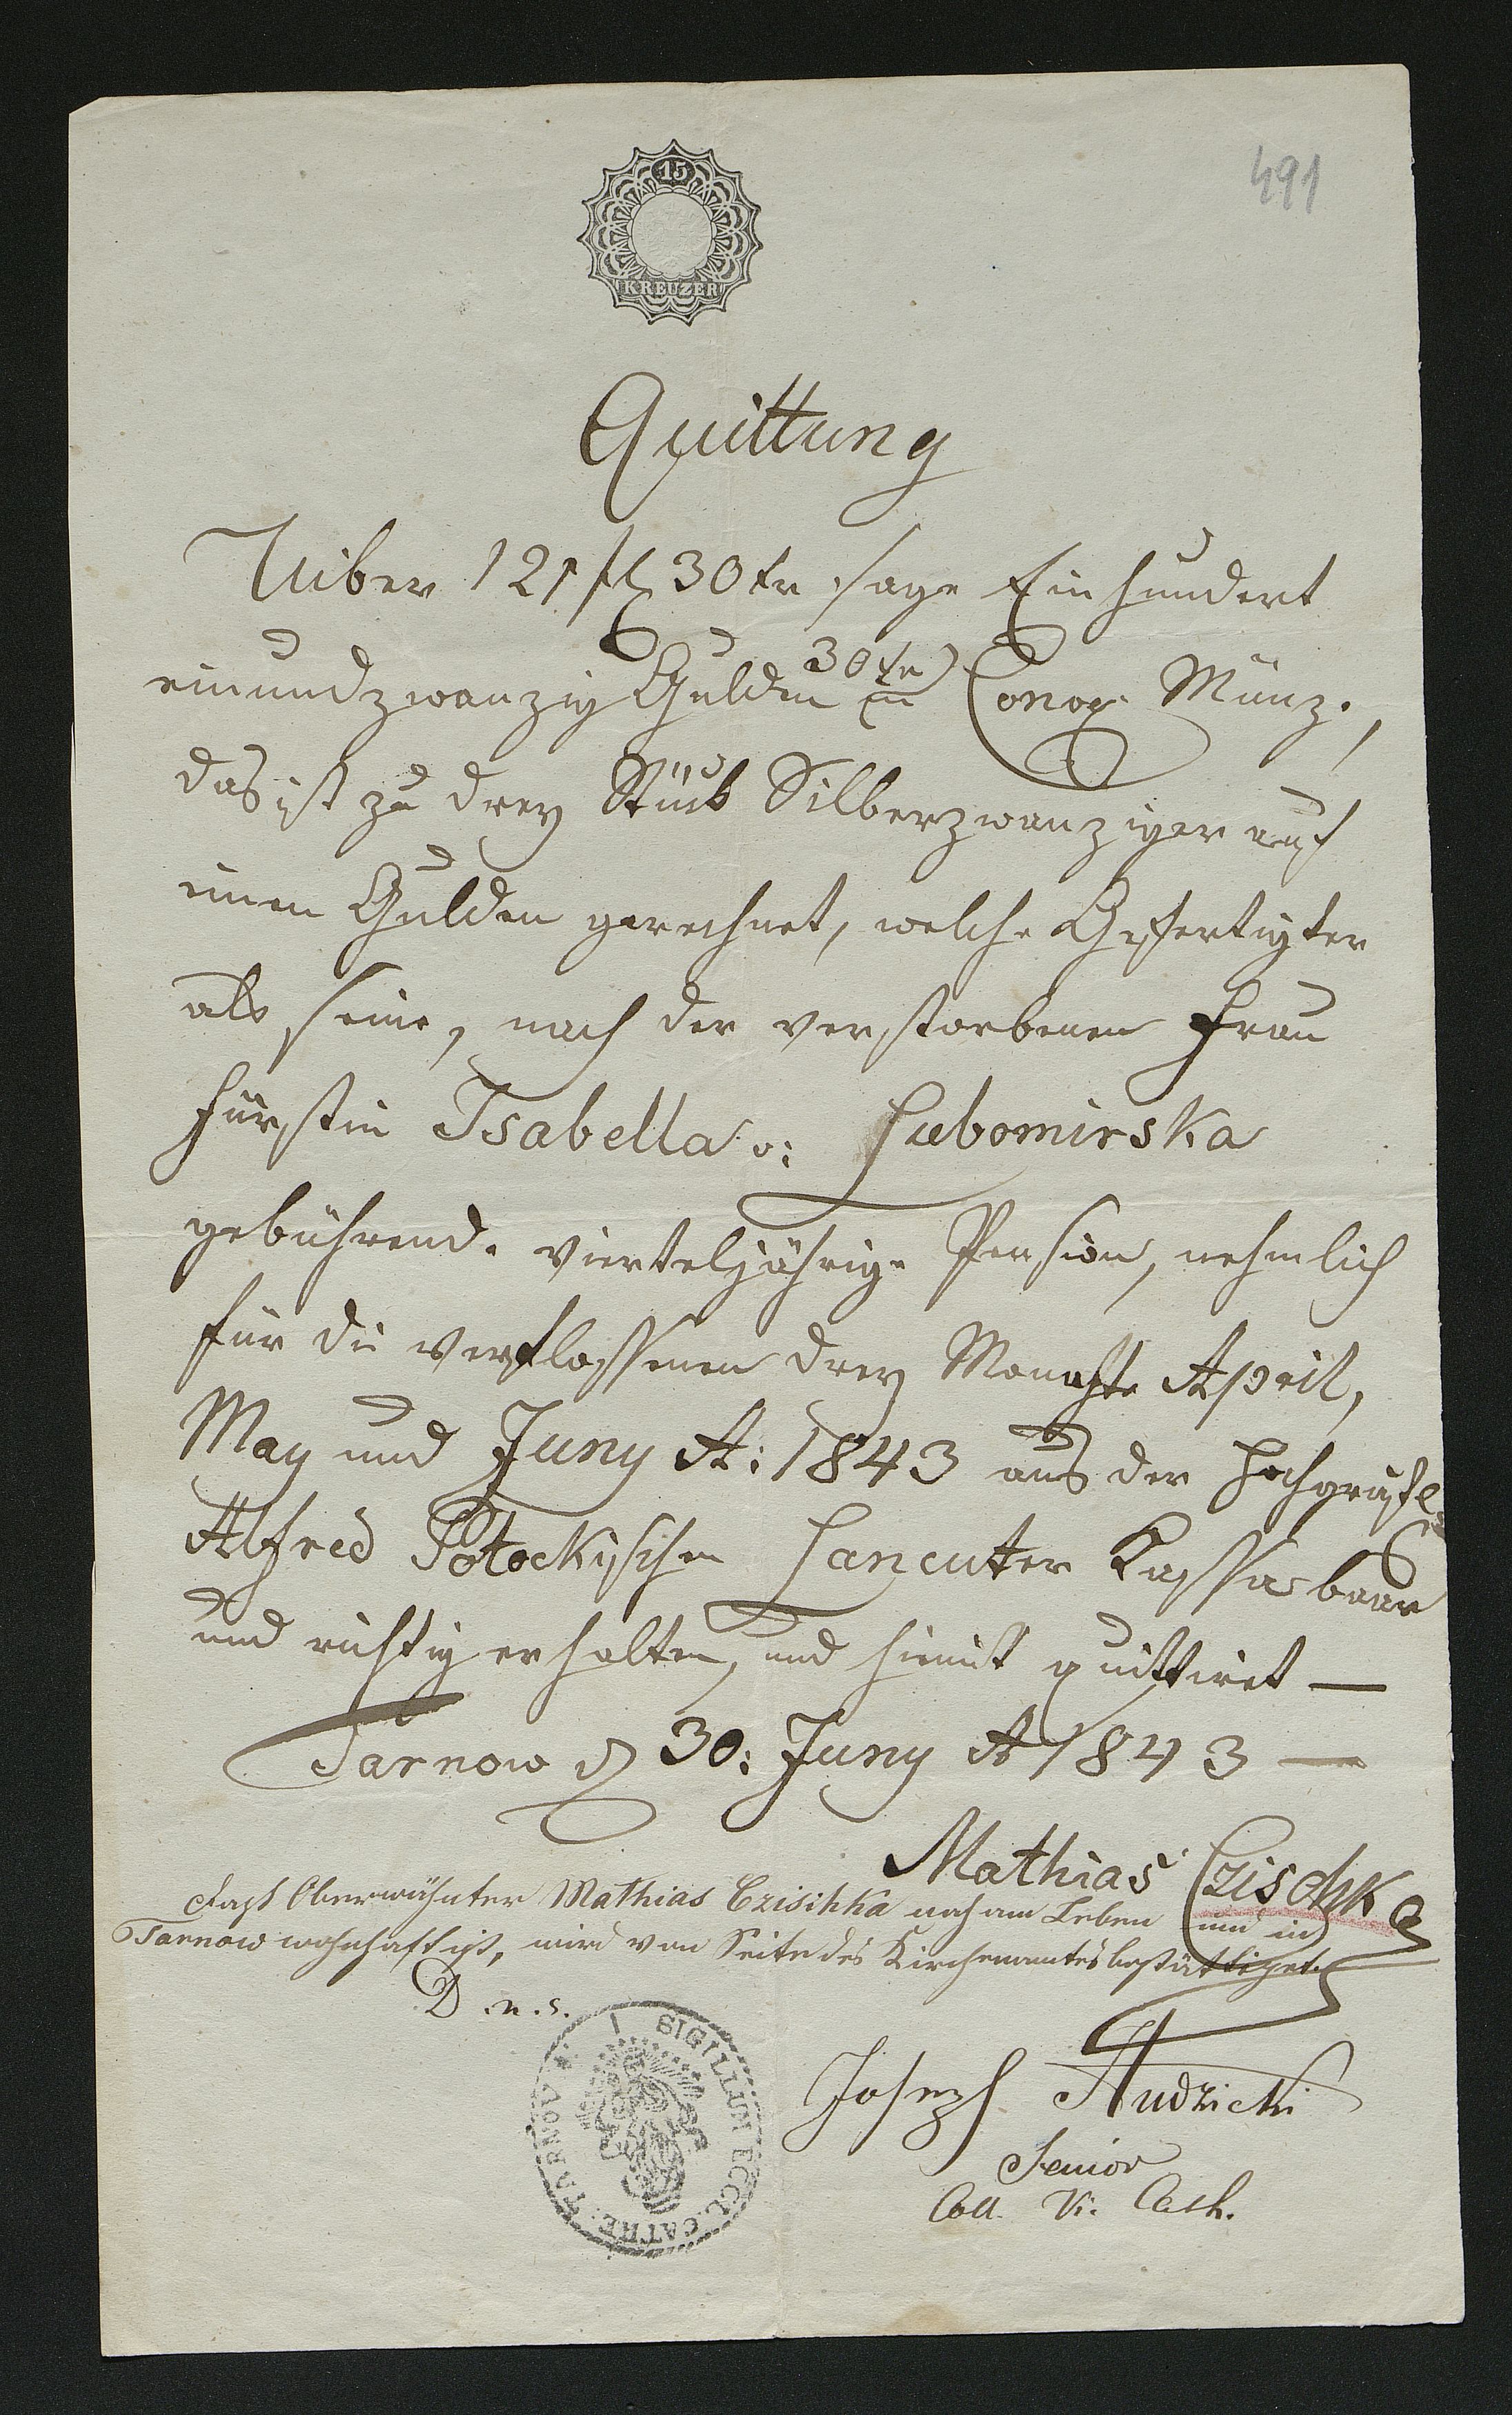 491
15
KREUZER
Quittung
Uiber 121 fl 30 kr sage Einhundert
einundzwanzig Gulden 30 kr in Conv. Münz.,
das ist zu drey Stück Silberzwanziger auf
einen Gulden gerechnet, welche Gefertigter
als seine, nach der verstorbenen Frau
Fürstin Isabella v: Lubomirska
gebührende vierteljährige Pension, nehmlich
für die verflossenen drey Monathe April,
May und Juny A: 1843 aus der Hochgräfl.
Alfred Potockyschen Lancuter Kassa baar
und richtig erhalten, und hiemit quittiret —
Tarnow d 30: Juny A 1843 —
Mathias Czischka
Daß Oberwähnter Mathias Czischka noch am Leben und in
Tarnow wohnhaft ist, wird von Seite des Kirchenamtes bestättiget.
D. u. s.
SIGILLUM ECCL. CATHE: TARNOV
Joseph
Senior
Coll. Vi. Cath.